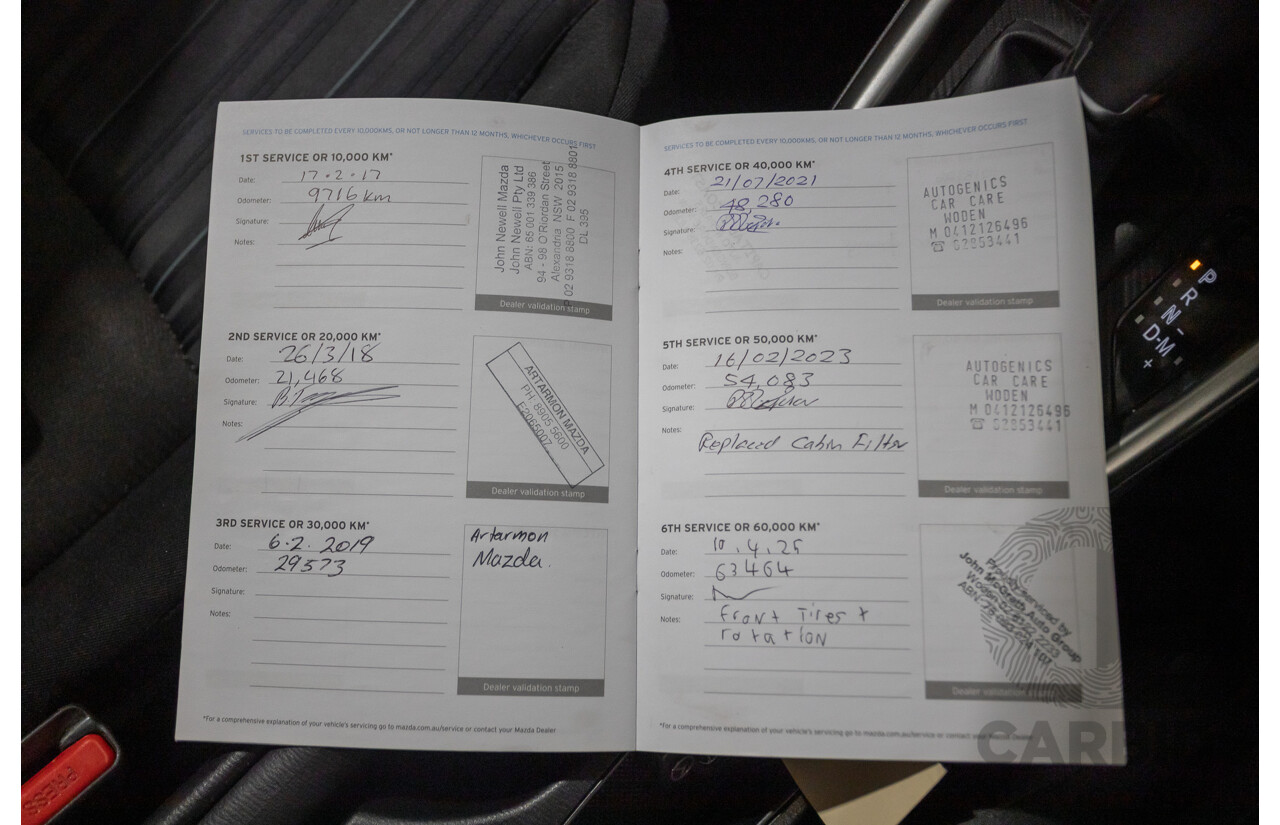 SERVICES TO BE COMPLETED EVERY 10,000KMS, OR NOT LONGER THAN 12 MONTHS, WHICHEVER OCCURS FIRST
1ST SERVICE OR 10,000 KM*
Date: 17-2-17
Odometer: 9716 km
Signature:
Notes:
John Newell Mazda
John Newell Pty Ltd
ABN: 65 001 339 386
94 - 98 O'Riordan Street
Alexandria NSW 2015
P 02 9318 8800 F 02 9318 8801
DL 395
Dealer validation stamp
2ND SERVICE OR 20,000 KM*
Date: 26/3/18
Odometer: 21,468
Signature:
Notes:
ARTARMON MAZDA
PH: 8905 5600
Dealer validation stamp
3RD SERVICE OR 30,000 KM*
Date: 6.2.2019
Odometer: 29573
Signature:
Notes:
Artarmon
Mazda.
Dealer validation stamp
*For a comprehensive explanation of your vehicle's servicing go to mazda.com.au/service or contact your Mazda Dealer
SERVICES TO BE COMPLETED EVERY 10,000KMS, OR NOT LONGER THAN 12 MONTHS, WHICHEVER OCCURS FIRST
4TH SERVICE OR 40,000 KM*
Date: 21/07/2021
Odometer: 48,280
Signature:
Notes:
AUTOGENICS
CAR CARE
WODEN
M 0412126496
☎ 62853441
Dealer validation stamp
5TH SERVICE OR 50,000 KM*
Date: 16/02/2023
Odometer: 54,083
Signature:
Notes:
Replaced Cabin Filter
AUTOGENICS
CAR CARE
WODEN
M 0412126496
☎ 62853441
Dealer validation stamp
6TH SERVICE OR 60,000 KM*
Date: 10.4.25
Odometer: 63464
Signature:
Notes: Front Tires +
rotation
Proudly Serviced by
John McGrath Auto Group
Dealer validation stamp
*For a comprehensive explanation of your vehicle's servicing go to mazda.com.au/service or contact your Mazda Dealer
P
R
N -
D-M
+
PRESS